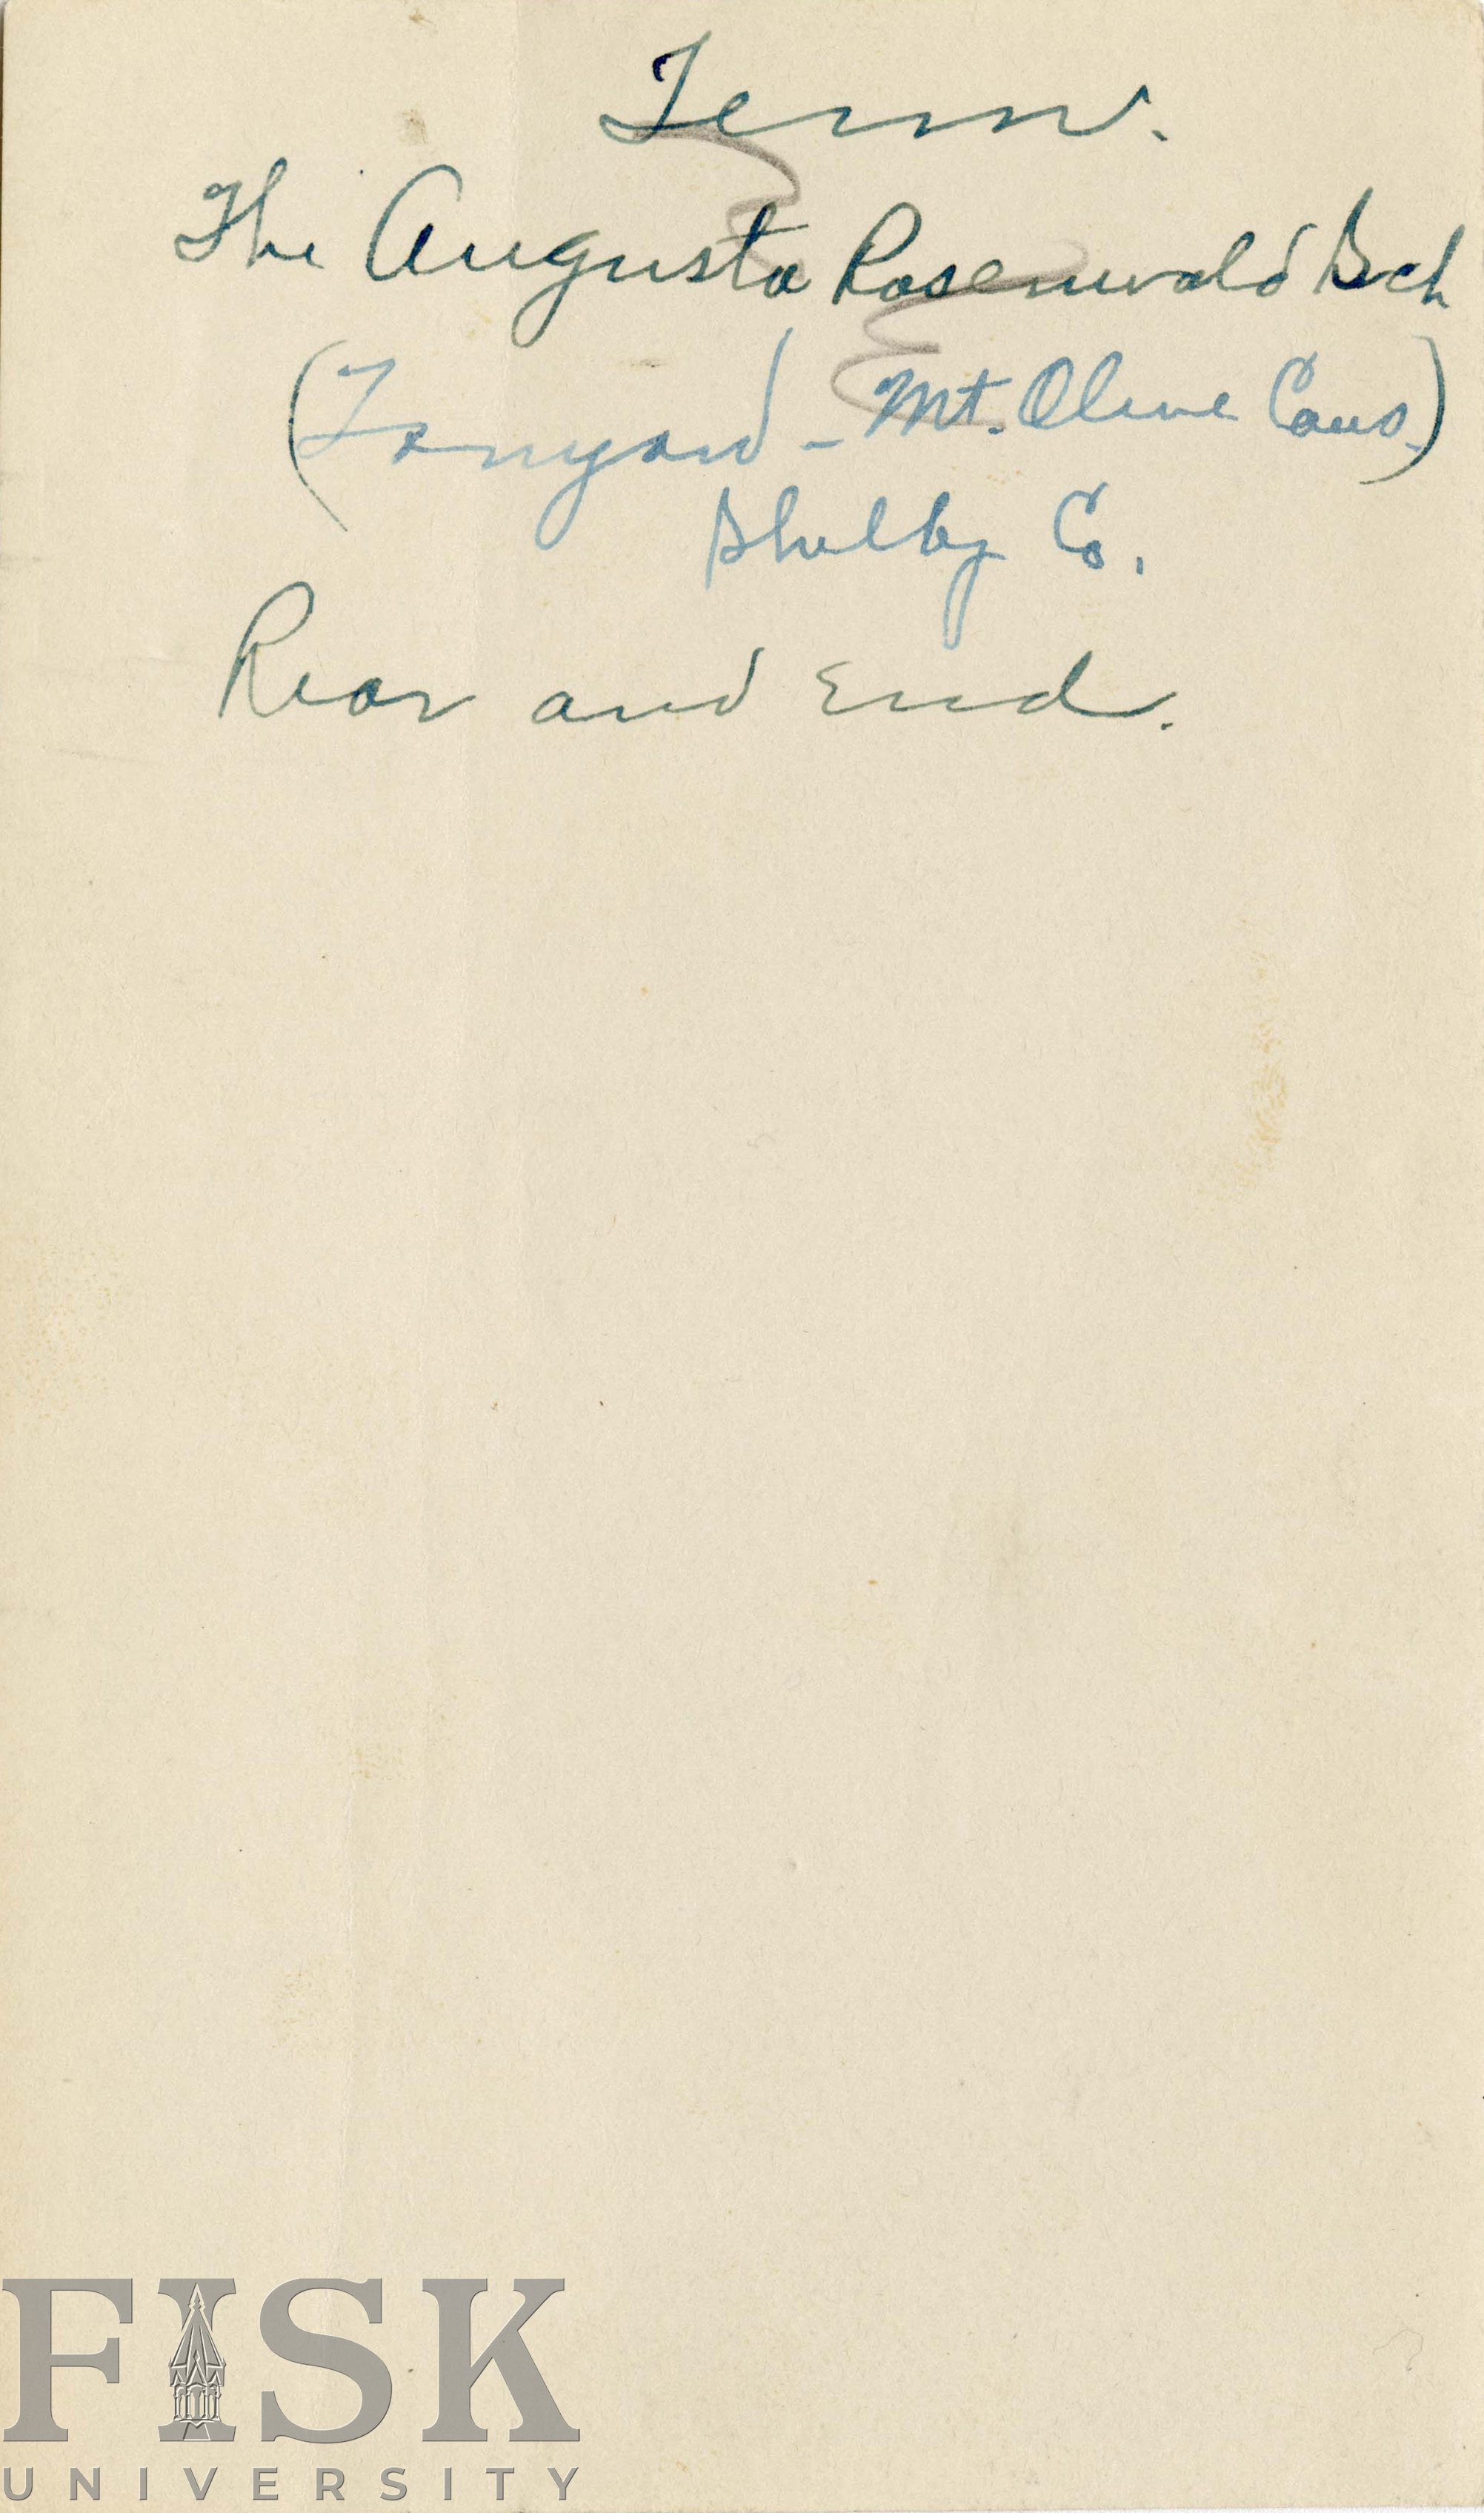 Tenn.
The Augusta Rosenwald Sch
(Tanyard - Mt. Olive Cons.)
Shelby Co.
Rear and End.
FISK
UNIVERSITY